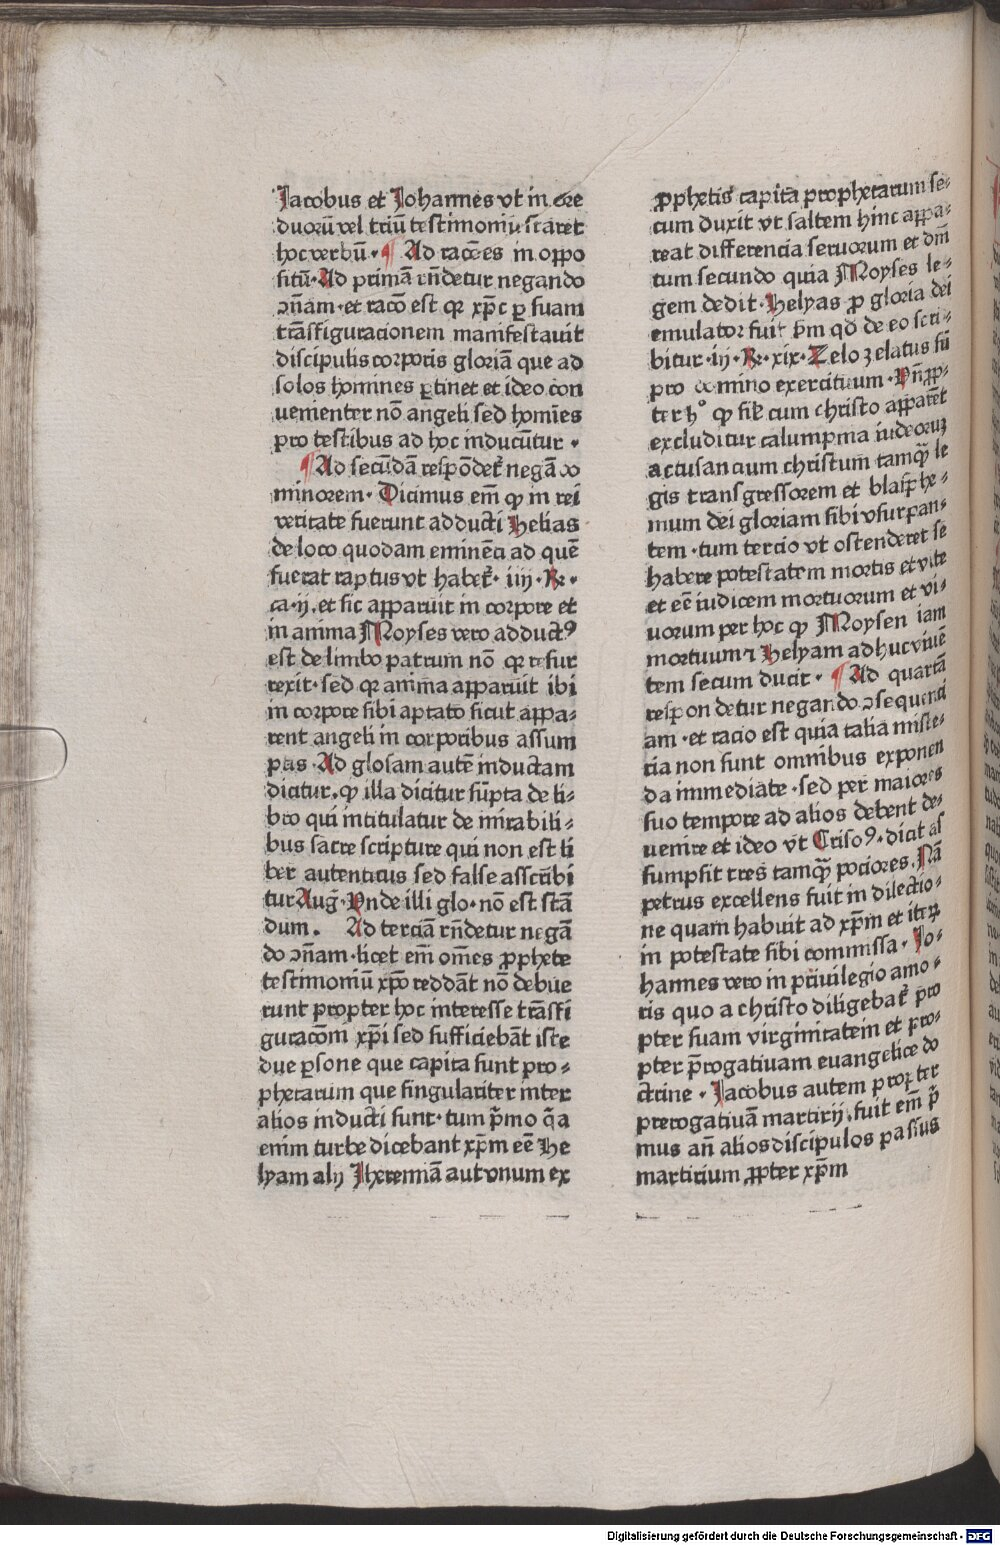 Jacobus et Johannes vt in ore
duorū vel triū testimoniū staret
hoc verbū · ¶ Ad racōes in oppo
sitū· Ad primā rn̄detur negando
ↄn̄am· et racō est qr xp̄c ꝑ suam
trāsfiguracionem manifestauit
discipulis corporis gloriā que ad
solos homines ꝑtinet et ideo con
uenienter nō angeli sed homīes
pro testibus ad hoc inducūtur ·
¶ Ad secūdā respōdet᷑ negādo
minorem· Dicimus em̄ ꝙ in rei
veritate fuerunt adducti Helias
de loco quodam eminēci ad quē
fuerat raptus vt habet᷑· iiij· R·
ca· ij. et sic apparuit in corpore et
in anima Moyses vero adductꝰ
est de limbo patrum nō qr resur
rexit· sed qr anima apparuit ibi
in corpore sibi aptato sicut appa⸗
rent angeli in corporibus assum
ptis· Ad glosam autē inductam
dicitur. ꝙ illa dicitur sūpta de li⸗
bro qui intitulatur de mirabili⸗
bus sacre scripture qui non est li
ber autenticus sed false asscribi
tur Aug̃· Vnde illi glo· nō est stā
dum. Ad terciā rn̄detur negā
do ↄn̄am· licet em̄ om̄es ꝓphete
testimoniū xp̄o reddāt nō debue
runt propter hoc interesse trāsfi
guracōm xp̄i sed sufficiebāt iste
due ꝑsone que capita sunt pro⸗
phetarum que singulariter inter
alios inducti sunt· tum p̄mo q̄a
enim turbe dicebant xp̄m eē He
lyam alij Jheremiā aut vnum ex
ꝓphetis capita prophetarum se⸗
cum duxit vt saltem hinc appa⸗
reat differencia seruorum et dn̄i
tum secundo quia Moyses le⸗
gem dedit· Helyas ꝓ gloria dei
emulator fuit p̄m qd̄ de eo scri⸗
bitur· iij· R· xix· Zelo zelatus sū
pro domino exercituum· Vn̄ ꝓp⸗
ter hͦ ꝙ sil̄ cum christo apparēt
excluditur calumpma iudeoruꝫ
accusancium christum tamqᷓ le
gis transgressorem et blasphe⸗
mum dei gloriam sibi vsurpan⸗
tem · tum tercio vt ostenderet se
habere potestatem mortis et vite
et eē iudicem mortuorum et vi⸗
uorum per hoc ꝙ Moysen iam
mortuum ⁊ Helyam adhuc viuē
tem secum ducit · ¶ Ad quartā
respondetur negando ↄsequenci
am · et racio est quia talia miste⸗
ria non sunt omnibus exponen
da immediate · sed per maiores
suo tempore ad alios debent de⸗
uenire et ideo vt Crisoꝰ· dicit as
sumpsit tres tamqᷓ pociores. Nā
petrus excellens fuit in dilectio⸗
ne quam habuit ad xp̄m et iteꝝ
in potestate sibi commissa · Jo⸗
hannes vero in priuilegio amo⸗
ris quo a christo diligebat᷑ pro
pter suam virginitatem et pro⸗
pter p̄rogatiuam euangelice do
ctrine · Jacobus autem propter
prerogatiuā martirij. fuit em̄ p̄
mus an̄ alios discipulos passus
martirium ꝓpter xp̄m
Digitalisierung gefördert durch die Deutsche Forschungsgemeinschaft · DFG